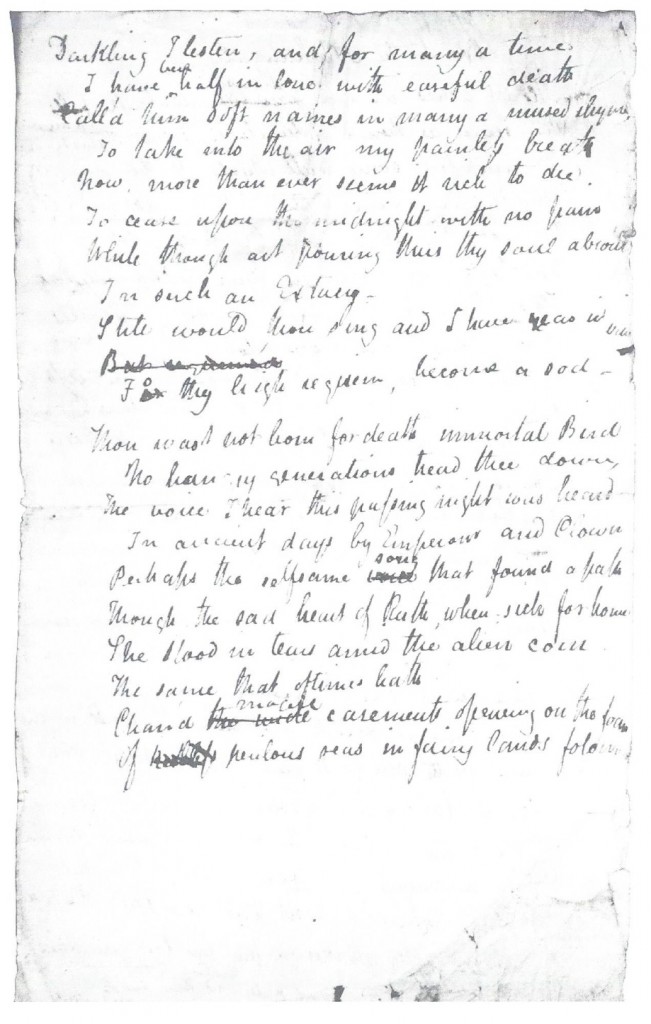 Darkling I listen, and, for many a time
I have been half in love with easeful death
Call'd him soft names in many a mused rhyme,
To take into the air my painless breath
Now, more than ever seems it rich to die.
To cease upon the midnight with no pain
While though art pouring thus thy soul abroad
In such an Extacy –
Still would thou sing and I have ears in vain
But requiem'd
For thy high requiem, become a sod –
Thou wast not born for death immortal Bird
No hungry generations tread thee down,
The voice I hear this passing night was heard
In ancient days by Emperour and Clown
Perhaps the selfsame song that found a path
Through the sad heart of Ruth, when sick for home
She stood in tears amid the alien corn
The same that oftimes hath
Charm'd the wide magic casements opening on the foam
Of perilous seas in fairy lands forlorn